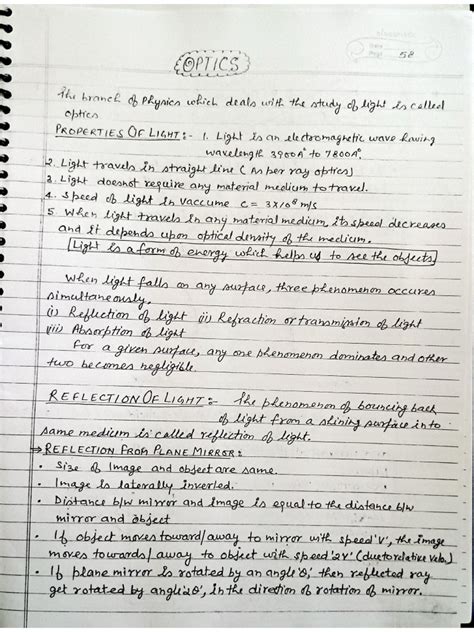 Page 58
OPTICS
The branch of Physics which deals with the study of light is called
optics
PROPERTIES OF LIGHT:- 1. Light is an electromagnetic wave having
wavelength 3900A° to 7800A°.
2. Light travels in straight line (As per ray optics)
3. Light doesnot require any material medium to travel.
4. Speed of light in vaccume C = 3X10⁸ m/s
5. When light travels in any material medium, its speed decreases
and it depends upon optical density of the medium.
[Light is a form of energy which helps us to see the objects]
When light falls on any surface, three phenomenon occures
simultaneously.
(i) Reflection of light (ii) Refraction or transmission of light
(iii) Absorption of light
For a given surface, any one phenomenon dominates and other
two becomes negligible.
REFLECTION OF LIGHT:- The phenomenon of bouncing back
of light from a shining surface into
same medium is called reflection of light.
⇒ REFLECTION FROM PLANE MIRROR:
• Size of Image and object are same.
• Image is laterally inverted.
• Distance b/w mirror and image is equal to the distance b/w
mirror and object
• If object moves toward/away to mirror with speed 'V', the image
moves towards/away to object with speed '2V' (due to relative velo.)
• If plane mirror is rotated by an angle 'θ', then reflected ray
get rotated by angle 2θ', in the direction of rotation of mirror.